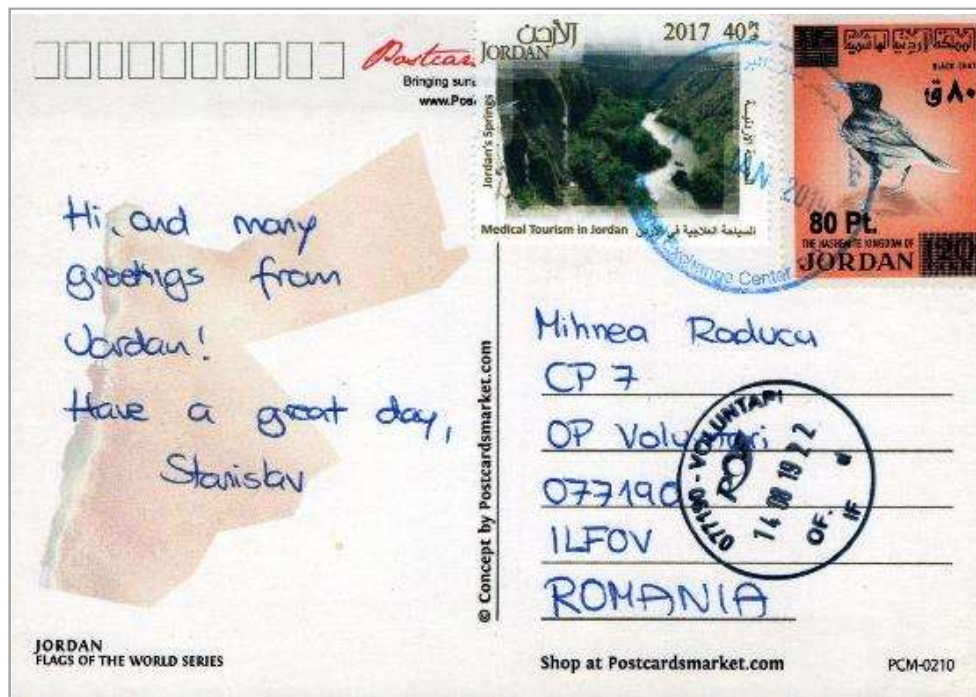 Bringing
www.Pos
الأردن
JORDAN
2017 40
Jordan's Springs
Medical Tourism in Jordan السياحة العلاجية في الأردن
٨٠ ق
80 Pt.
THE HASHEMITE KINGDOM OF
JORDAN
120
JAN 2019
Exchange Center
Hi, and many
greetings from
Jordan!
Have a great day,
Stanislav
© Concept by Postcardsmarket.com
Mihnea Raducu
CP 7
OP Voluntari
077190
ILFOV
ROMANIA
077190 - VOLUNTARI
14 08 19 22
OF. IF
JORDAN
FLAGS OF THE WORLD SERIES
Shop at Postcardsmarket.com
PCM-0210